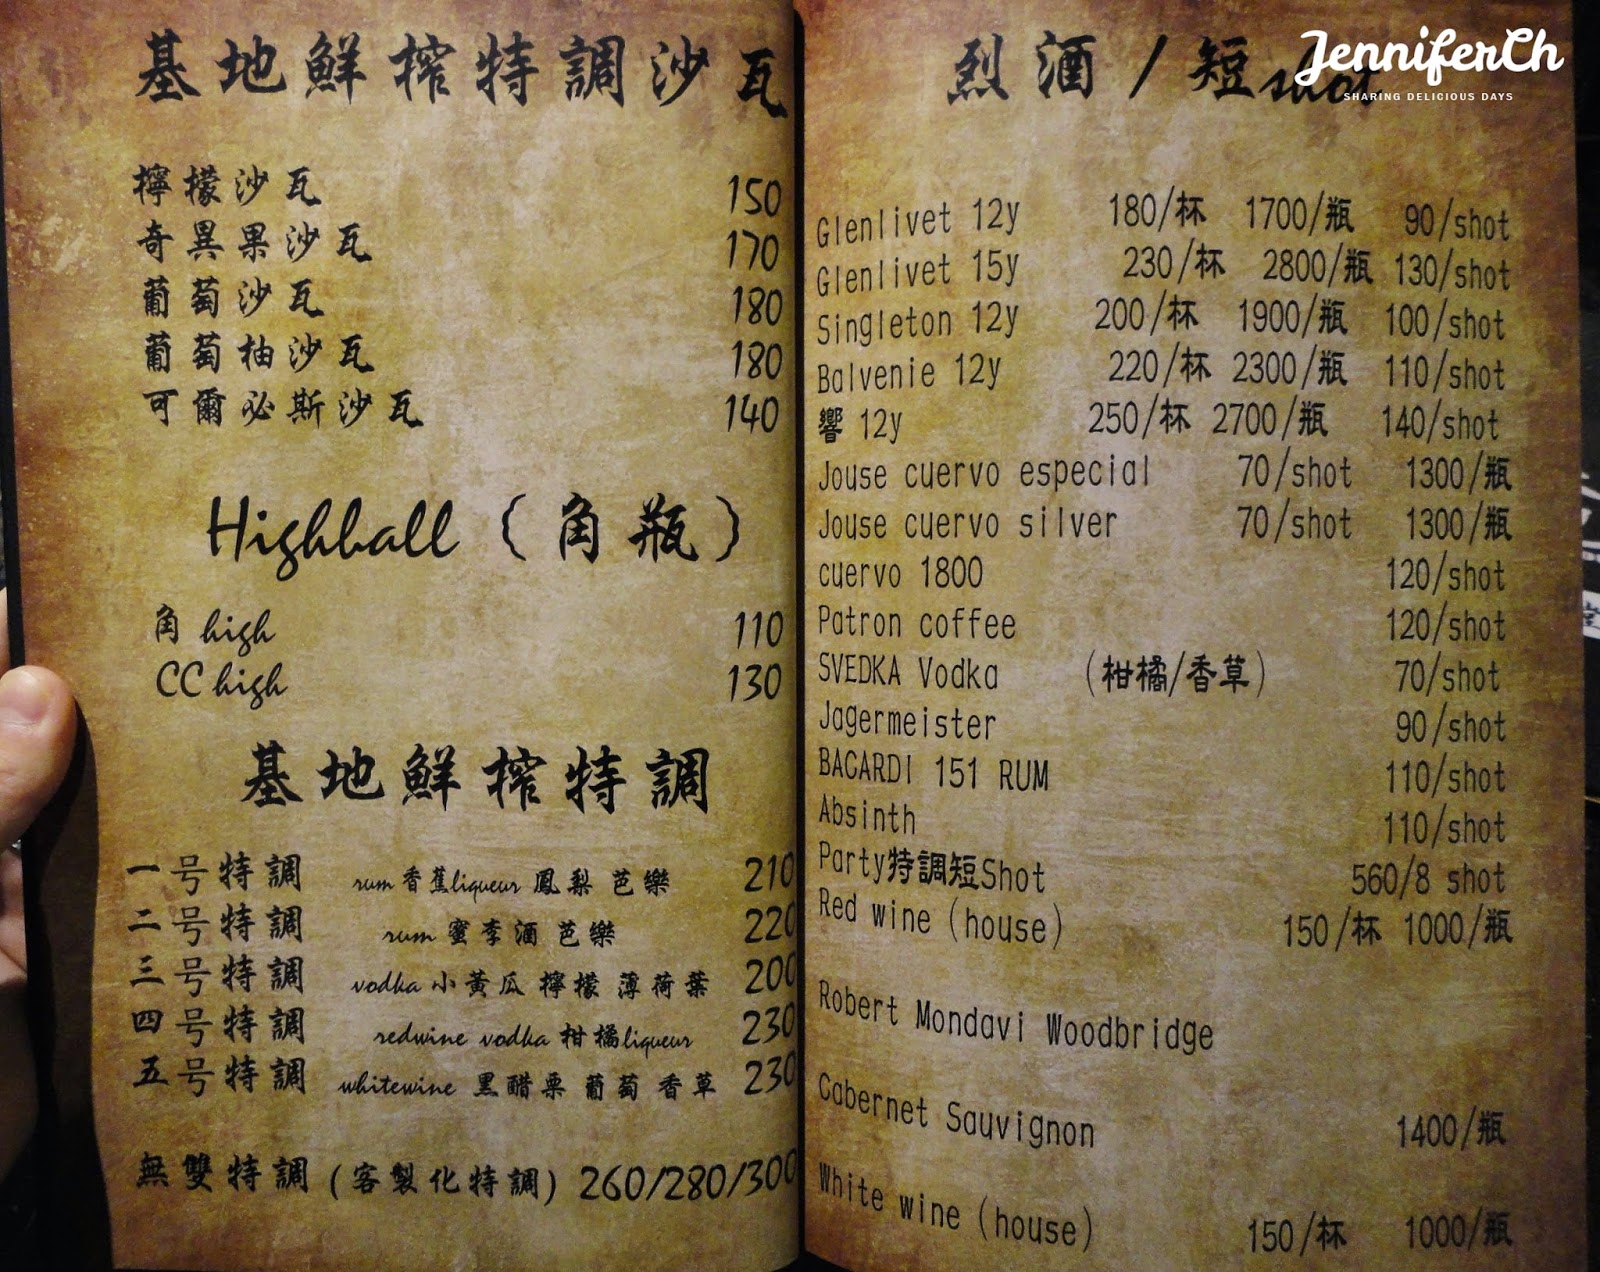 基地鮮榨特調沙瓦
檸檬沙瓦 150
奇異果沙瓦 170
葡萄沙瓦 180
葡萄柚沙瓦 180
可爾必斯沙瓦 140
Highball (角瓶)
角 high 110
CC high 130
基地鮮榨特調
一号特調 rum 香蕉liqueur 鳳梨 芭樂 210
二号特調 rum 蜜李酒 芭樂 220
三号特調 vodka 小黃瓜 檸檬 薄荷葉 200
四号特調 redwine vodka 柑橘liqueur 230
五号特調 whitewine 黑醋栗 葡萄 香草 230
無雙特調 (客製化特調) 260/280/300
烈酒 / 短shot
JenniferCh
SHARING DELICIOUS DAYS
Glenlivet 12y 180/杯 1700/瓶 90/shot
Glenlivet 15y 230/杯 2800/瓶 130/shot
Singleton 12y 200/杯 1900/瓶 100/shot
Balvenie 12y 220/杯 2300/瓶 110/shot
響 12y 250/杯 2700/瓶 140/shot
Jouse cuervo especial 70/shot 1300/瓶
Jouse cuervo silver 70/shot 1300/瓶
cuervo 1800 120/shot
Patron coffee 120/shot
SVEDKA Vodka (柑橘/香草) 70/shot
Jagermeister 90/shot
BACARDI 151 RUM 110/shot
Absinth 110/shot
Party特調短Shot 560/8 shot
Red wine (house) 150/杯 1000/瓶
Robert Mondavi Woodbridge
Cabernet Sauvignon 1400/瓶
White wine (house) 150/杯 1000/瓶